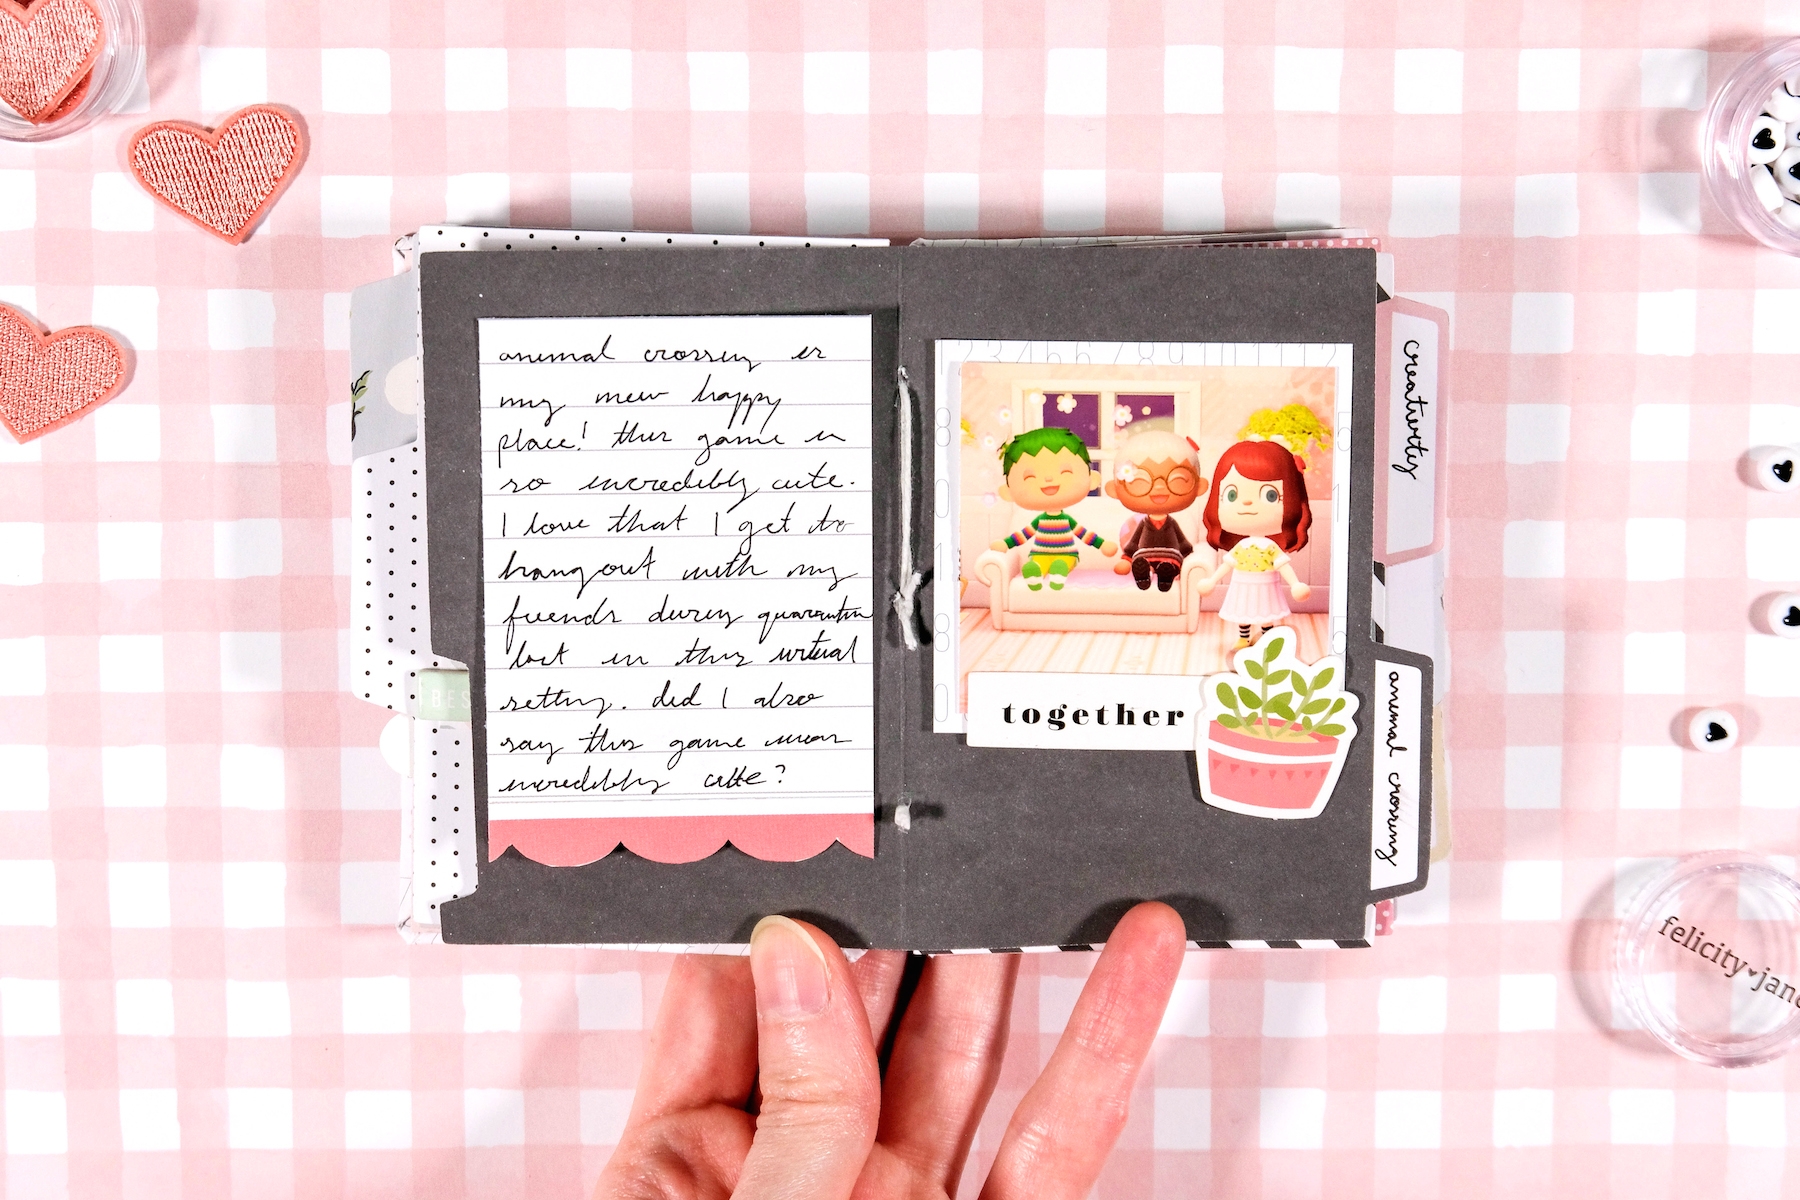 animal crossing is
my new happy
place! this game is
so incredibly cute.
I love that I get to
hangout with my
friends during quarantine
but in this virtual
setting. did I also
say this game was
incredibly cute?
BES
1234567891011 12
together
creativity
animal crossing
felicity jane